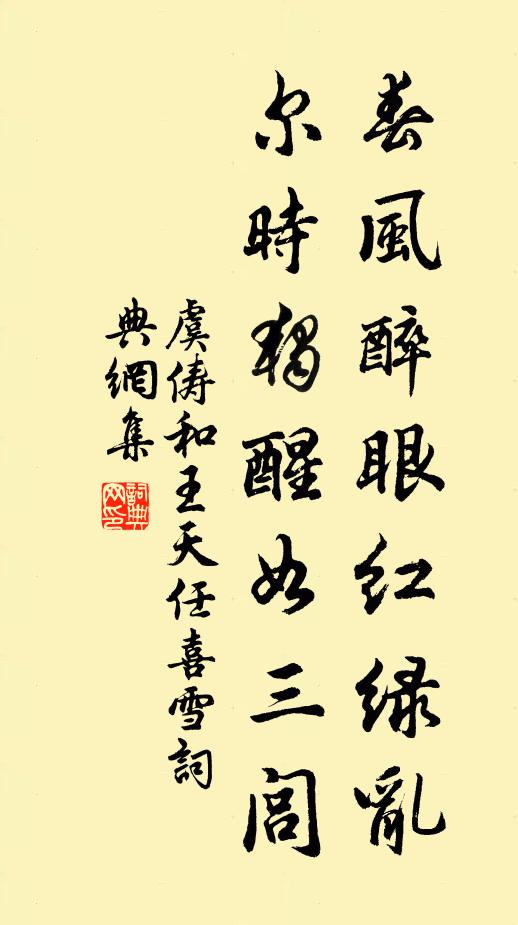 春風醉眼紅绿亂
尔時獨醒如三閭
虞俦和王天任喜雪詞
典網集
詞典
网印